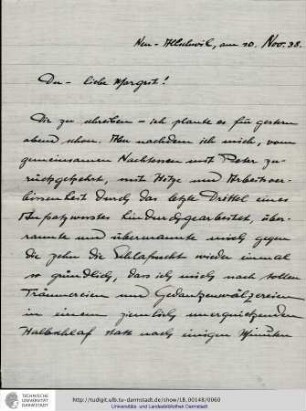 Neu-Allschwil, am 20. Nov. 38.
Du - liebe Margrit!
Dir zu schreiben - ich plante es für gestern
abend schon. Aber nachdem ich mich, vom
gemeinsamen Nachtessen mit Peter zu-
rückgekehrt, mit Hitze und Arbeitsver-
bissenheit durch das letzte Drittel eines
hindurchgearbeitet, über-
rannte und übermannte mich gegen
die zehn die Schlafsucht wieder einmal
so gründlich, dass ich mich nach tollen
Träumereien und Gedankenwälzereien
in einem ziemlich unerquickenden
Halbschlaf statt nach einigen Minuten
TECHNISCHE
UNIVERSITÄT
DARMSTADT
http://tudigit.ulb.tu-darmstadt.de/show/LB.00148/0069
Universitäts- und Landesbibliothek Darmstadt